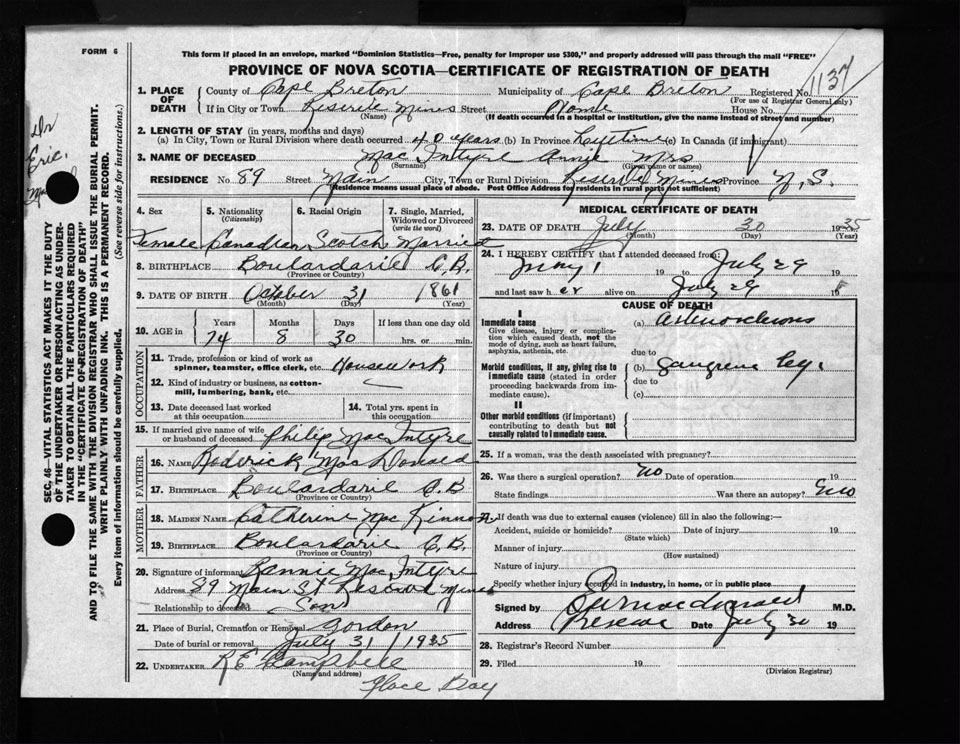 FORM 6
This form if placed in an envelope, marked "Dominion Statistics—Free, penalty for improper use $300," and properly addressed will pass through the mail "FREE"
PROVINCE OF NOVA SCOTIA—CERTIFICATE OF REGISTRATION OF DEATH
1137
1. PLACE OF DEATH
County of Cape Breton Municipality of Cape Breton Registered No.
(For use of Registrar General only)
If in City or Town Reserve Mines Street Home House No.
(Name) (If death occurred in a hospital or institution, give the name instead of street and number)
2. LENGTH OF STAY (in years, months and days)
(a) In City, Town or Rural Division where death occurred 40 years (b) In Province Lifetime (c) In Canada (if immigrant)
3. NAME OF DECEASED Mac Intyre Annie Mrs
(Surname) (Given name or names)
RESIDENCE No. 89 Street Main City, Town or Rural Division Reserve Mines Province N. S.
(Residence means usual place of abode. Post Office Address for residents in rural parts not sufficient)
4. Sex Female
5. Nationality (Citizenship) Canadian
6. Racial Origin Scotch
7. Single, Married, Widowed or Divorced (write the word) Married
8. BIRTHPLACE Boulardarie C.B.
(Province or Country)
9. DATE OF BIRTH October 31 1861
(Month) (Day) (Year)
10. AGE in Years Months Days If less than one day old
74 8 30 hrs. or min.
OCCUPATION
11. Trade, profession or kind of work as spinner, teamster, office clerk, etc. Housework
12. Kind of industry or business, as cotton-mill, lumbering, bank, etc.
13. Date deceased last worked at this occupation
14. Total yrs. spent in this occupation
15. If married give name of wife or husband of deceased Philip Mac Intyre
FATHER
16. Name Roderick Mac Donald
17. Birthplace Boulardarie C.B
(Province or Country)
MOTHER
18. Maiden Name Catherine Mac Kinnon
19. Birthplace Boulardarie C.B.
(Province or Country)
20. Signature of informant Mac Intyre
Address 89 Main St Reserve Mines
Relationship to deceased Son
21. Place of Burial, Cremation or Removal Gordon
Date of burial or removal July 31 / 1935
22. UNDERTAKER R E Campbell
(Name and address)
Glace Bay
MEDICAL CERTIFICATE OF DEATH
23. DATE OF DEATH July 30 1935
(Month) (Day) (Year)
24. I HEREBY CERTIFY that I attended deceased from:
May 1 19 to July 29 19
and last saw her alive on July 29 19
CAUSE OF DEATH
I
Immediate cause
Give disease, injury or complication which caused death, not the mode of dying, such as heart failure, asphyxia, asthenia, etc.
(a)
due to
Morbid conditions, if any, giving rise to immediate cause (stated in order proceeding backwards from immediate cause).
(b) gangrene leg
due to
(c)
II
Other morbid conditions (if important) contributing to death but not causally related to immediate cause.
25. If a woman, was the death associated with pregnancy?
26. Was there a surgical operation? No Date of operation 19
State findings Was there an autopsy? No
27. If death was due to external causes (violence) fill in also the following:—
Accident, suicide or homicide? Date of injury 19
(State which)
Manner of injury
(How sustained)
Nature of injury
Specify whether injury occurred in industry, in home, or in public place
Signed by Macdonald M.D.
Address Reserve Date July 30 19
28. Registrar's Record Number
29. Filed 19
(Division Registrar)
SEC. 46—VITAL STATISTICS ACT MAKES IT THE DUTY
OF THE UNDERTAKER OR PERSON ACTING AS UNDER-
TAKER TO OBTAIN ALL THE PARTICULARS REQUIRED
IN THE "CERTIFICATE OF REGISTRATION OF DEATH"
AND TO FILE THE SAME WITH THE DIVISION REGISTRAR WHO SHALL ISSUE THE BURIAL PERMIT.
WRITE PLAINLY WITH UNFADING INK. THIS IS A PERMANENT RECORD.
Every item of information should be carefully supplied. (See reverse side for instructions.)
Dr
Eric.